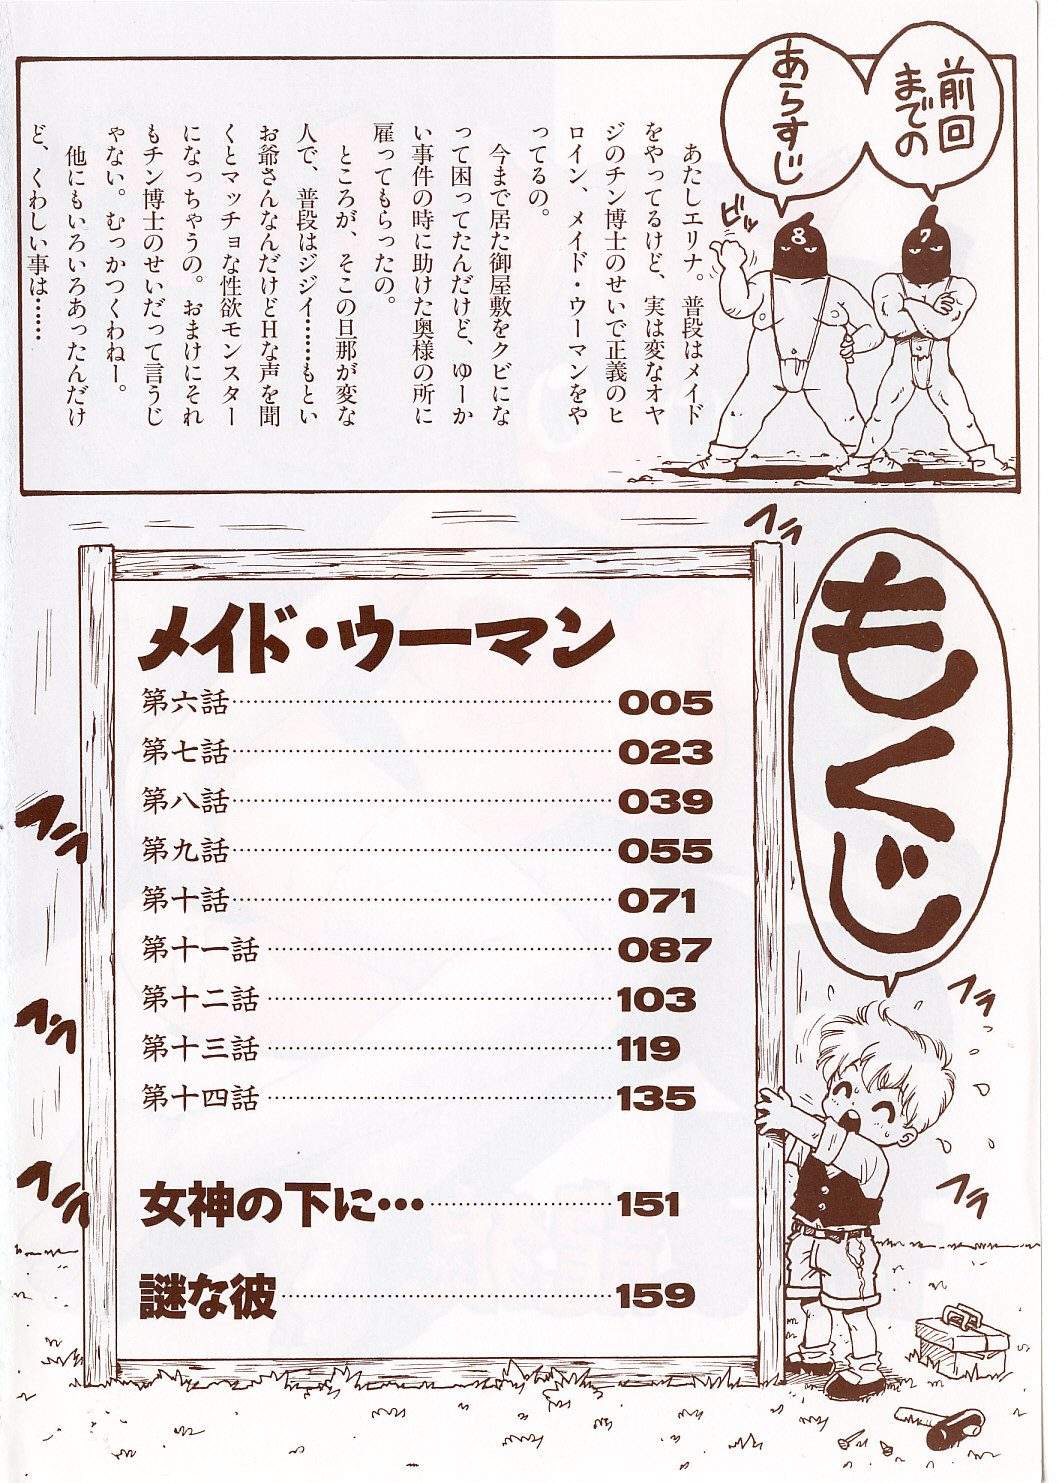 前回
までの
あらすじ
8
7
ビッ
あたしエリナ。普段はメイド
をやってるけど、実は変なオヤ
ジのチン博士のせいで正義のヒ
ロイン、メイド・ウーマンをや
ってるの。
今まで居た御屋敷をクビにな
って困ってたんだけど、ゆーか
い事件の時に助けた奥様の所に
雇ってもらったの。
ところが、そこの旦那が変な
人で、普段はジジイ……もとい
お爺さんなんだけどHな声を聞
くとマッチョな性欲モンスター
になっちゃうの。おまけにそれ
もチン博士のせいだって言うじ
ゃない。むっかつくわねー。
他にもいろいろあったんだけ
ど、くわしい事は……
もくじ
フラ
メイド・ウーマン
第六話……005
第七話……023
第八話……039
第九話……055
第十話……071
第十一話……087
第十二話……103
第十三話……119
第十四話……135
女神の下に………151
謎な彼……159
フラ
フラ
フラ
フラ
フラ